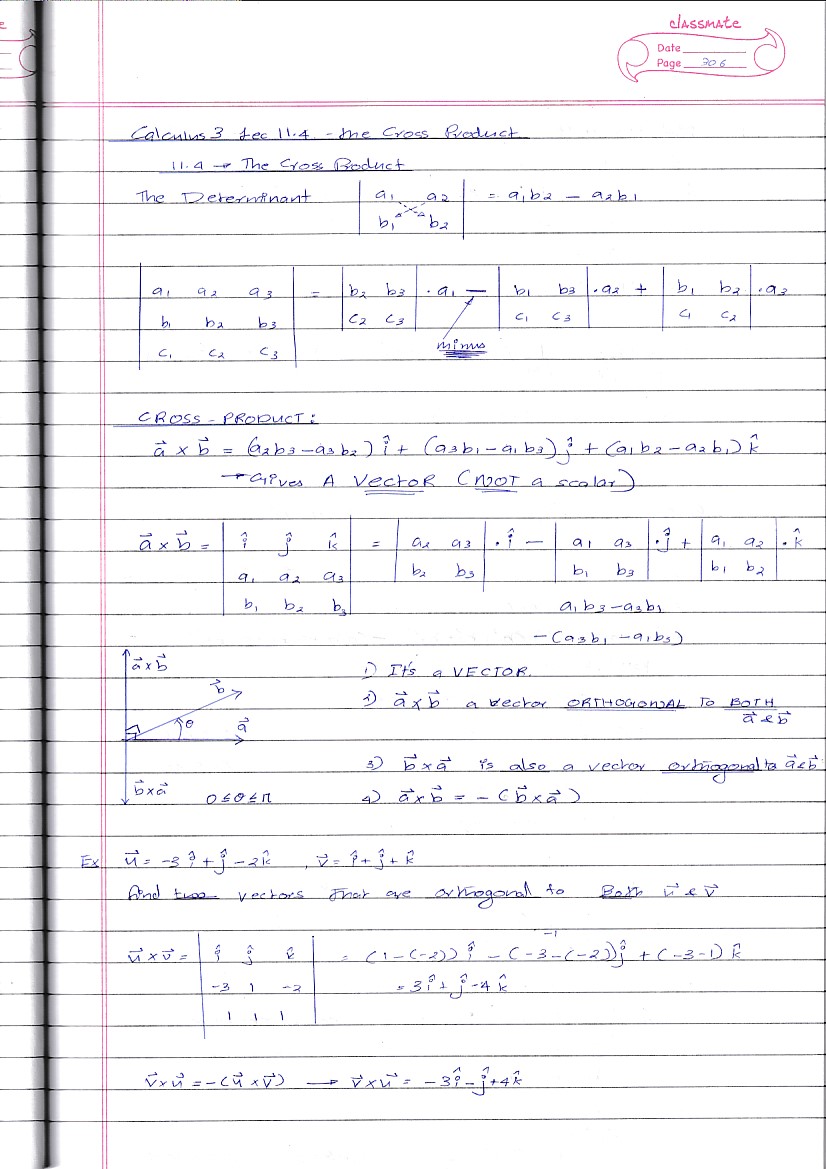 classmate
Date
Page 306
Calculus 3 Lec 11.4 - the Cross Product
11.4 → The Cross Product
The Determinant | a₁ a₂ | = a₁b₂ - a₂b₁
| b₁ b₂ |
| a₁ a₂ a₃ | = | b₂ b₃ | · a₁ — | b₁ b₃ | · a₂ + | b₁ b₂ | · a₃
| b₁ b₂ b₃ | | c₂ c₃ | | c₁ c₃ | | c₁ c₂ |
| c₁ c₂ c₃ | minus
CROSS-PRODUCT:
a⃗ × b⃗ = (a₂b₃ - a₃b₂) î + (a₃b₁ - a₁b₃) ĵ + (a₁b₂ - a₂b₁) k̂
→ Gives A VECTOR (NOT a scalar)
a⃗ × b⃗ = | î ĵ k̂ | = | a₂ a₃ | · î — | a₁ a₃ | · ĵ + | a₁ a₂ | · k̂
| a₁ a₂ a₃ | | b₂ b₃ | | b₁ b₃ | | b₁ b₂ |
| b₁ b₂ b₃ | a₁b₃ - a₃b₁
-(a₃b₁ - a₁b₃)
a⃗ × b⃗
b⃗
θ
a⃗
b⃗ × a⃗
0 ≤ θ ≤ π
1) It's a VECTOR.
2) a⃗ × b⃗ a vector ORTHOGONAL TO BOTH
a⃗ & b⃗
3) b⃗ × a⃗ is also a vector orthogonal to a⃗ & b⃗
4) a⃗ × b⃗ = - (b⃗ × a⃗)
Ex u⃗ = -3î + ĵ - 2k̂ , v⃗ = î + ĵ + k̂
find two vectors that are orthogonal to Both u⃗ & v⃗
u⃗ × v⃗ = | î ĵ k̂ | = (1-(-2)) î - (-3-(-2)) ĵ + (-3-1) k̂
-1
| -3 1 -2 | = 3î + ĵ - 4k̂
| 1 1 1 |
v⃗ × u⃗ = -(u⃗ × v⃗) → v⃗ × u⃗ = -3î - ĵ + 4k̂